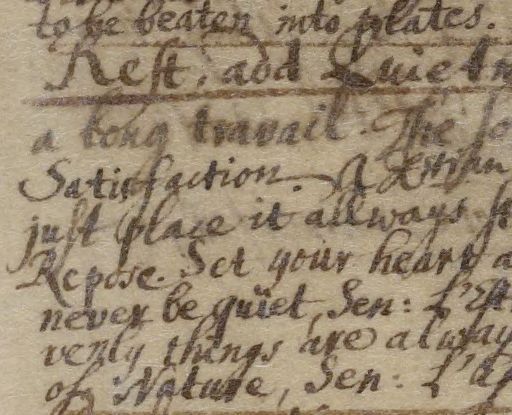 to be beaten into plates.
Rest, and Quietn
a long travail. The so
Satisfaction. A Xstian
just place it allways
Repose. Set your heart a
never be quiet, Sen: L'Est
venly things are alway
of Nature, Sen: L'